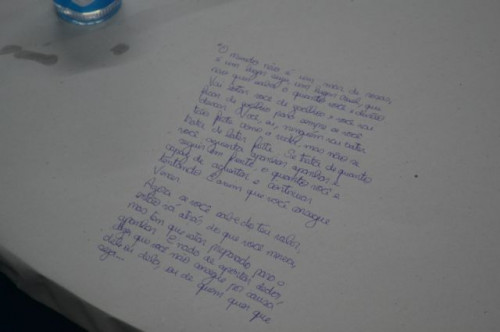 "O mundo não é um mar de rosas,
é um lugar sujo, um lugar cruel, que
não quer saber o quanto você é durão
Vai botar você de joelhos e você vai
ficar de joelhos para sempre se você
deixar. Você, eu, ninguém vai bater
tão forte como a vida, mas não se
trata de bater forte. Se trata de quanto
você aguenta apanhar e
seguir em frente, o quanto você é
capaz de aguentar e continuar
tentando. É assim que você consegue
Vencer.
Agora se você sabe do teu valor,
então vá atrás do que você merece,
mas tem que estar preparado para
apanhar. E nada de apontar dedos,
dizer que você não consegue por causa
dele ou dela, ou de quem quer que
seja...